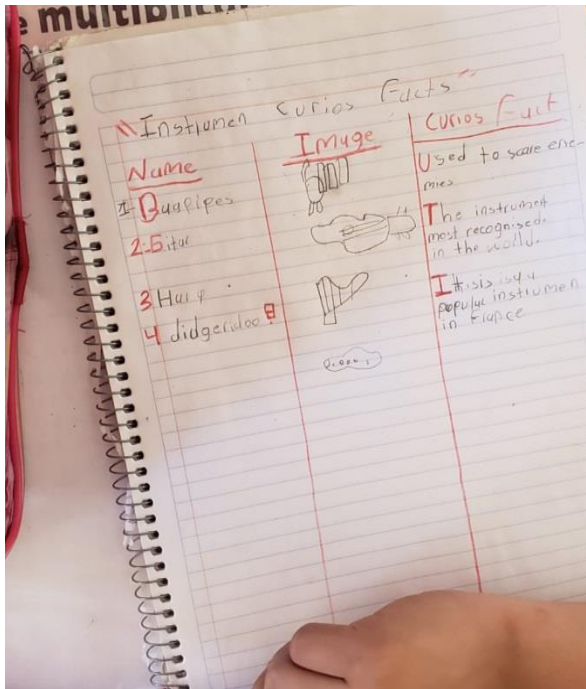 multi
"Instrumen curios Facts"
Name
Image
Curios Fact
1- Bagpipes
Used to scare ene-
mies
2-Sitar
The instrument
most recognised.
in the world.
3 Harp
It isis
popular instrumen
in France
4 didgeridoo